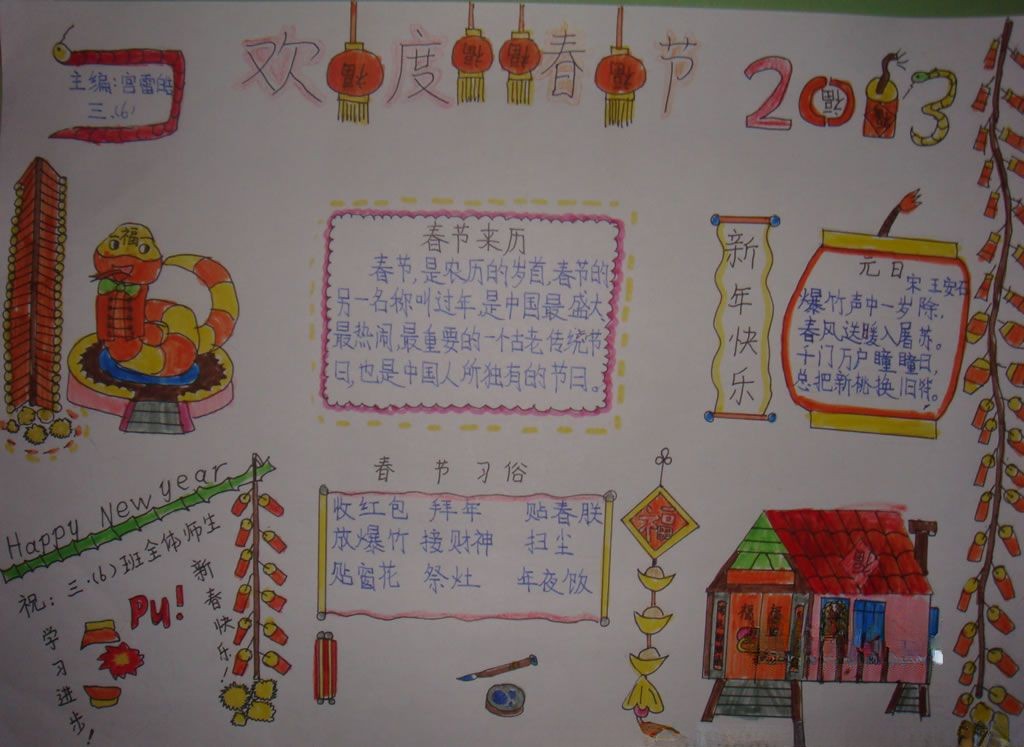 欢度春节
福 福 福 福
2013
福
主编:宫雷皓
三.(6)
福
春节来历
春节,是农历的岁首,春节的
另一名称叫过年,是中国最盛大、
最热闹,最重要的一个古老传统节
日,也是中国人所独有的节日。
新年快乐
元日
宋 王安石
爆竹声中一岁除,
春风送暖入屠苏。
千门万户瞳瞳日,
总把新桃换旧符。
Happy New year
祝:三.(6)班全体师生
新春快乐!
学习进步!
PU!
春节习俗
收红包 拜年 贴春联
放爆竹 接财神 扫尘
贴窗花 祭灶 年夜饭
福
福
福 福